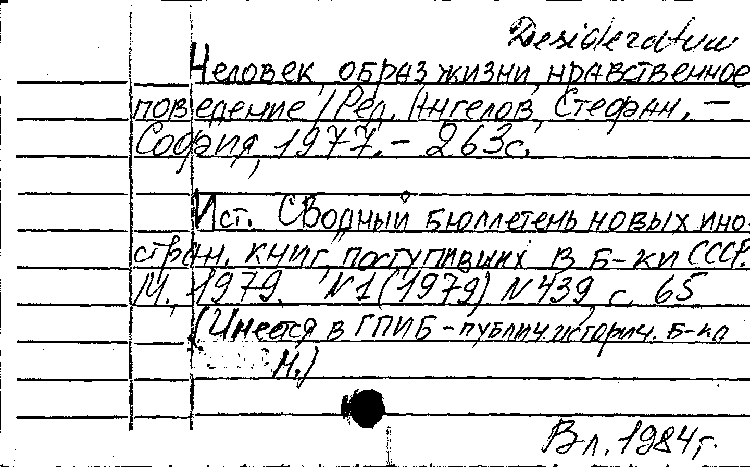 Desideratum
Человек, образ жизни, нравственное
поведение / Ред. Ангелов, Стефан. –
София, 1977. – 263с.
Ист. Сводный бюллетень новых ино-
стран. книг, поступивших в б-ки СССР.
М., 1979. N1 (1979) N439, с. 65
(Имеется в ГПИБ – публич. историч. б-ка
М.)
Вл. 1984г.